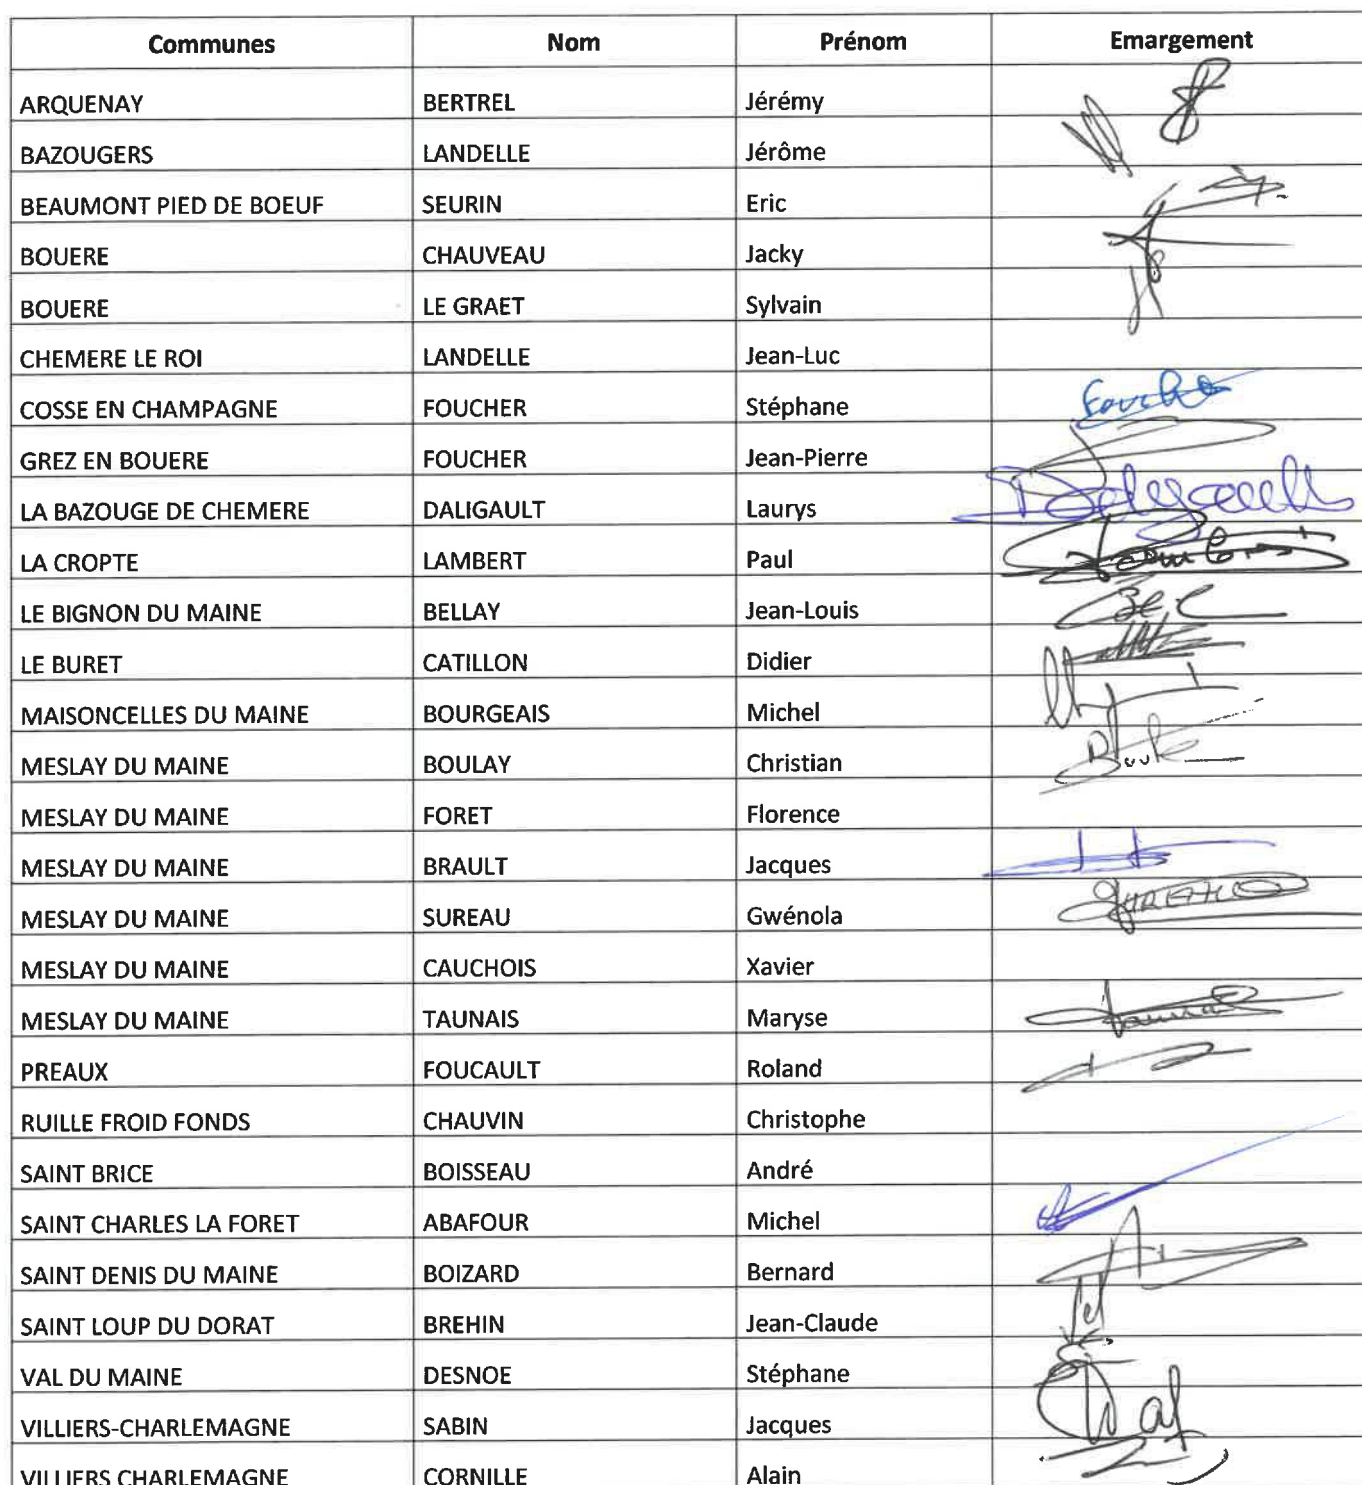 Communes Nom Prénom Emargement
ARQUENAY BERTREL Jérémy
BAZOUGERS LANDELLE Jérôme
BEAUMONT PIED DE BOEUF SEURIN Eric
BOUERE CHAUVEAU Jacky
BOUERE LE GRAET Sylvain
CHEMERE LE ROI LANDELLE Jean-Luc
COSSE EN CHAMPAGNE FOUCHER Stéphane
GREZ EN BOUERE FOUCHER Jean-Pierre
LA BAZOUGE DE CHEMERE DALIGAULT Laurys
LA CROPTE LAMBERT Paul
LE BIGNON DU MAINE BELLAY Jean-Louis
LE BURET CATILLON Didier
MAISONCELLES DU MAINE BOURGEAIS Michel
MESLAY DU MAINE BOULAY Christian
MESLAY DU MAINE FORET Florence
MESLAY DU MAINE BRAULT Jacques
MESLAY DU MAINE SUREAU Gwénola
MESLAY DU MAINE CAUCHOIS Xavier
MESLAY DU MAINE TAUNAIS Maryse
PREAUX FOUCAULT Roland
RUILLE FROID FONDS CHAUVIN Christophe
SAINT BRICE BOISSEAU André
SAINT CHARLES LA FORET ABAFOUR Michel
SAINT DENIS DU MAINE BOIZARD Bernard
SAINT LOUP DU DORAT BREHIN Jean-Claude
VAL DU MAINE DESNOE Stéphane
VILLIERS-CHARLEMAGNE SABIN Jacques
VILLIERS CHARLEMAGNE CORNILLE Alain